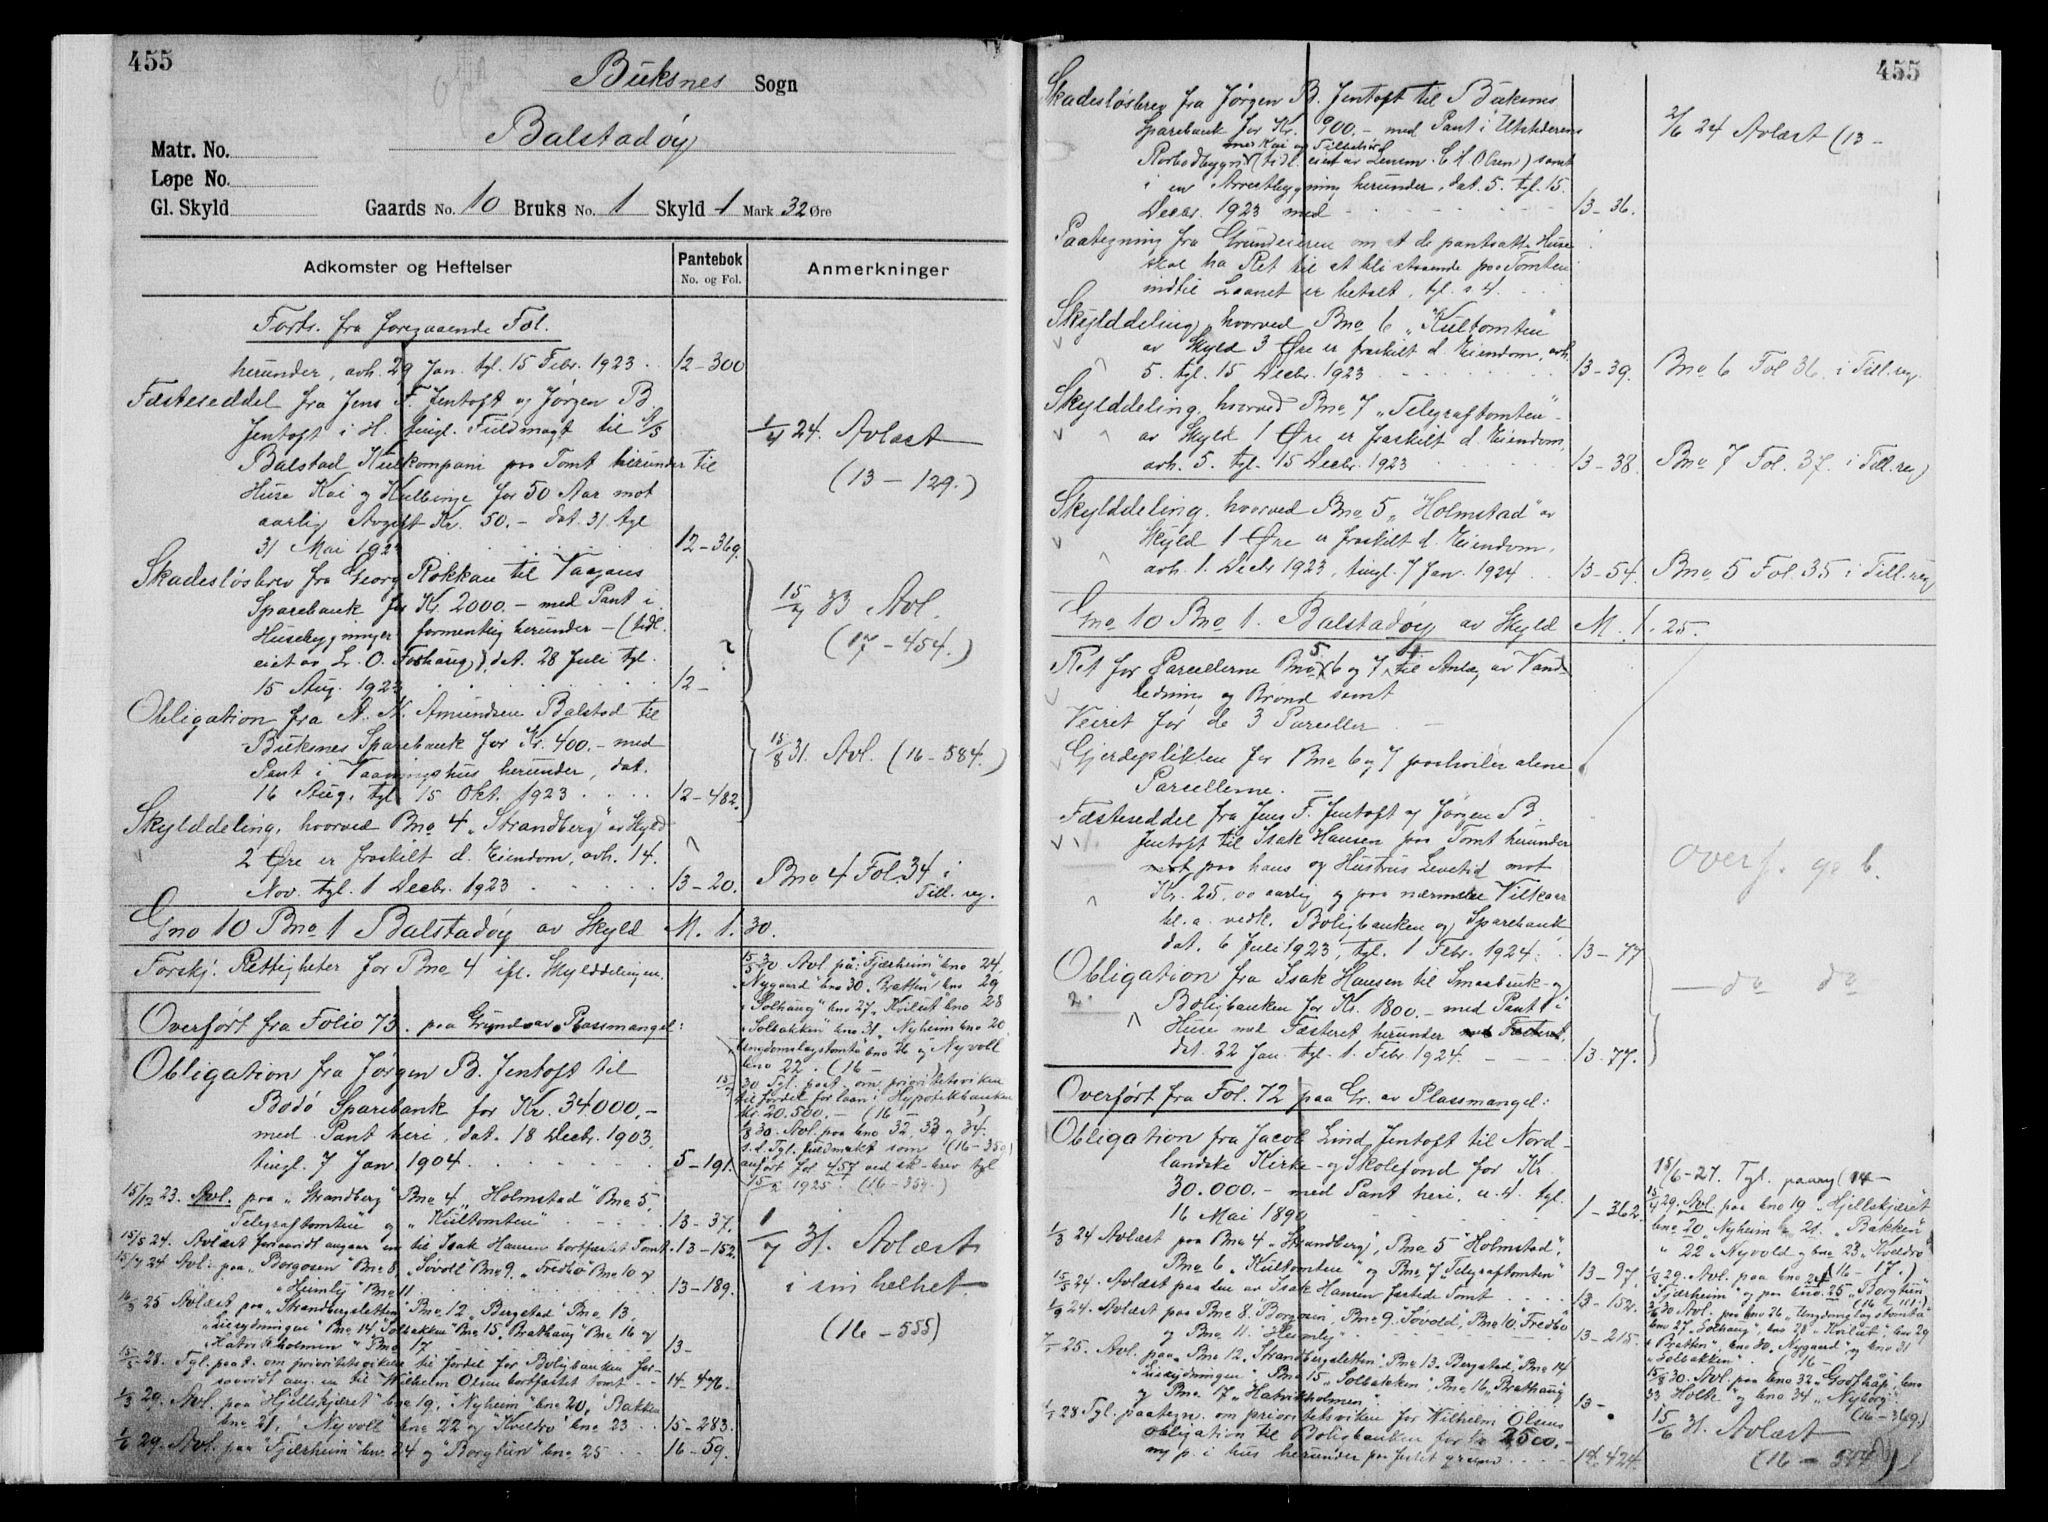 455
Buksnes Sogn
Balstadøy
Matr. No.
Løpe No.
Gl. Skyld Gaards No. 10 Bruks No. 1 Skyld 1 Mark 32 Øre
Adkomster og Heftelser
Pantebok
No. og Fol.
Anmerkninger
Forts. fra foregaaende Fol.
herunder, avh. 29 Jan. tgl. 15 Febr. 1923 . 12-300
Fæsteseddel fra Jens F. Jentoft og Jørgen B
Jentoft i H. tingl. Fuldmagt til
Balstad Kulkompani paa Tomt herunder til
Huse Kai og Kulbinge for 50 Aar mot
aarlig Avgift Kr. 50.- dat. 31 tgl
31 Mai 1923 12-369.
1/4 24. Avlæst
(13-129.)
Skadesløsbrev fra Georg Rokkan til Vaagans
Sparebank for Kr. 2000.- med Pant i
Husebygninger formentlig herunder - (tidl.
eiet av L. O. Foshaug), dat. 28 Juli tgl.
15 Aug. 1923 12-
15/7 33 Avl.
(17-454.)
Obligation fra A. N. Amundsen Balstad til
Buksnes Sparebank for Kr. 400.- med
Pant i Vaaningshus herunder, dat.
16 Aug. tgl 15 Okt. 1923 12-482.
15/8 31. Avl. (16-584.)
Skylddeling, hvorved Bno 4 „Strandberg" av Skyld
2 Øre er fraskilt d. Eiendom, avh. 14.
Nov. tgl. 1 Decbr. 1923 13-20.
Bno 4 Fol. 34 i
Till. reg.
Gno 10 Bno 1 Balstadøy av Skyld M. 1. 30.
Forskj. Rettigheter for Bno 4 ifl. Skylddelingen.
Overført fra Folio 73. paa Grund av Plassmangel:
Obligation fra Jørgen B. Jentoft til
Bodø Sparebank for Kr. 34000.-
med Pant heri, dat. 18 Decbr. 1903,
tingl. 7 Jan. 1904 5-191.
15/12 23. Avl. paa „Strandberg" Bno 4 „Holmstad" Bno 5,
Telegraftomten" og „Kultomten" 13-37.
15/3 24. Avlæst forsaavidt angaar en til Isak Hansen bortfæstet Tomt. 13-152.
15/7 24 Avl. paa „Borgosen" Bno 8, „Søvoll" Bno 9. „Fredbo" Bno 10 og
„Heimly" Bno 11 13-189.
16/3 25 Avlæst paa „Strandbergsletten" Bno 12 „Bergstad" Bno 13,
„Lierydningen" Bno 14 „Solbakken" Bno 15, Brathaug" Bno 16 og
Hatvikholmen" Bno 17 13-
28. Tgl. paat. om prioritetsvikelse til fordel for Boligbanken for-
saavidt ang. en til Wilhelm Olsen bortfæstet tomt 14-476.
1/3 29. Avl. paa "Hjellskjæret" bno 19, "Nyheim" bno 20, "Bakken
bno 21, "Nyvoll" bno 22 og "Kveldro" bno 23 15-283.
1/6 29. Avl. paa "Fjærheim" bno. 24 og "Borgtun" bno 25 16-59.
15/5 30 Avl. på "Fjærheim" bno 24,
Nygaard" bno 30, Bratten" bno 29
„Solhaug" bno 27, Kvilut" bno 28
„Solbakken" bno 31, Nyheim bno 20
Ungdomslagstomta" bno 26 og "Nyvoll"
bno 22. (16-
30 Tgl. paat. om prioritetsviken
til fordel for laan i Hypotekbanken
kr. 20.500.- (16-
1/8 30. Avl. paa bno 32, 33 og 34.
s.d. Tgl. fuldmakt som (16-359)
anført fol. 457 ved sk-brev tgl
1925. (16-359.)
1/7 31. Avlæst
i sin helhet
(16-555)
455
Skadesløsbrev fra Jørgen B. Jentoft til Buksnes
Sparebank for Kr. 900.- med Pant i Utstiderens
med Kai og Tilbehør
Rorbodbygn. (tidl. eiet av Lensm. C. M. Olsen) samt
i en Arrestbygning herunder, dat. 5. tgl. 15.
Decbr. 1923 med 13-36.
2/6 24 Avlæst (13-
Paategning fra Grundeieren om at de pantsatte Huse
skal ha Ret til at bli staaende paa Tomten
indtil Laanet er betalt, tgl. s. d.
Skylddeling, hvorved Bno 6 „Kultomten"
av Skyld 3 Øre er fraskilt d. Eiendom, avh.
5. tgl. 15 Decbr. 1923 13-39.
Bno 6 Fol 36. i Till. reg.
Skylddeling, hvorved Bno 7 „Telegraftomten"
av Skyld 1 Øre er fraskilt d. Eiendom,
avh. 5. tgl. 15 Decbr. 1923 13-38.
Bno 7 Fol. 37. i Till. reg
Skylddeling, hvorved Bno 5 „Holmstad" av
Skyld 1 Øre er fraskilt d. Eiendom,
avh. 1. Decbr 1923, tingl. 7 Jan. 1924 13-54.
Bno 5 Fol. 35 i Till. reg
Gno 10 Bno 1. Balstadøy av Skyld M. 1. 25.
Ret for Parcellerne Bno 5, 6 og 7 til Anlæg av Vand-
ledning og Brønd samt
Veiret for de 3 Parceller
Gjerdeplikten for Bno 6 og 7 paahviler alene
Parcellerne.
Fæsteseddel fra Jens F. Jentoft og Jørgen B.
Jentoft til Isak Hansen paa Tomt herunder
mot paa hans og Hustrus Levetid mot
Kr. 25,00 aarlig og paa nærmere Vilkaar
bl. a. vedk. Boligbanken og Sparebank
dat. 6 Juli 1923, tgl. 1 Febr. 1924. 13-77
Overf. gb b.
Obligation fra Isak Hansen til Smaabruk- og
Boligbanken for Kr. 1800.- med Pant i
Huse med Fæsteret herunder
dat. 22 Jan. tgl. 1. Febr. 1924. 13-77.
do do
Overført fra Fol. 72 paa Gr. av Plassmangel:
Obligation fra Jacob Lind Jentoft til Nord-
landske Kirke- og Skolefond for Kr.
30.000.- med Pant heri, u. d. tgl.
16 Mai 1890 1-362.
1/3 24 Avlæst paa Bno 4 "Strandberg", Bno 5 "Holmstad",
Bno 6 „Kultomten" og Bno 7 „Telegraftomten" 13-97.
15/3 24. Avlæst paa den av Isak Hansen fæstede Tomt 13-152.
1/9 24. Avlæst paa Bno 8 "Borgosen", Bno 9. "Søvold", Bno 10 "Fredbo"
og Bno 11. "Heimly" 13-215.
25. Avl. paa Bno 12. „Strandbergsletten", Bno 13. Bergstad", Bno 14
„Lierydningen" Bno 15 „Solbakken", Bno 16, Brathaug"
og Bno 17 „Hatvikholmen" 13-
28 Tgl. paategn. om prioritetsviken for Wilhelm Olsens
obligation til Boligbanken for kr 2500.-
m/p. i hus herunder paa festet grunn 14-424.
15/6-27. Tgl. paateg (14-
29. Avl. paa bno 19 „Hjellskjæret"
bno 20 „Nyheim" bno 21. „Bakken"
„ 22 „Nyvold og bno 23 „Kveldro"
(16-17.)
29. Avl. paa bno 24
"Fjærheim" og paa bno. 25 „Borgtun"
30 Avl. paa bno 26 "Ungdomslagstomta"
bno 27 „Solhaug", bno 28 "Kvilut", bno 29
„Bratten", bno 30, Nygaard" og bno 31
„Solbakken". (16-
15/8 30. Avl. paa bno 32 „Godthåp", bno
33 „Holte" og bno 34 „Nyborg".
(16-369.)
15/6 31. Avlæst
(16-544)